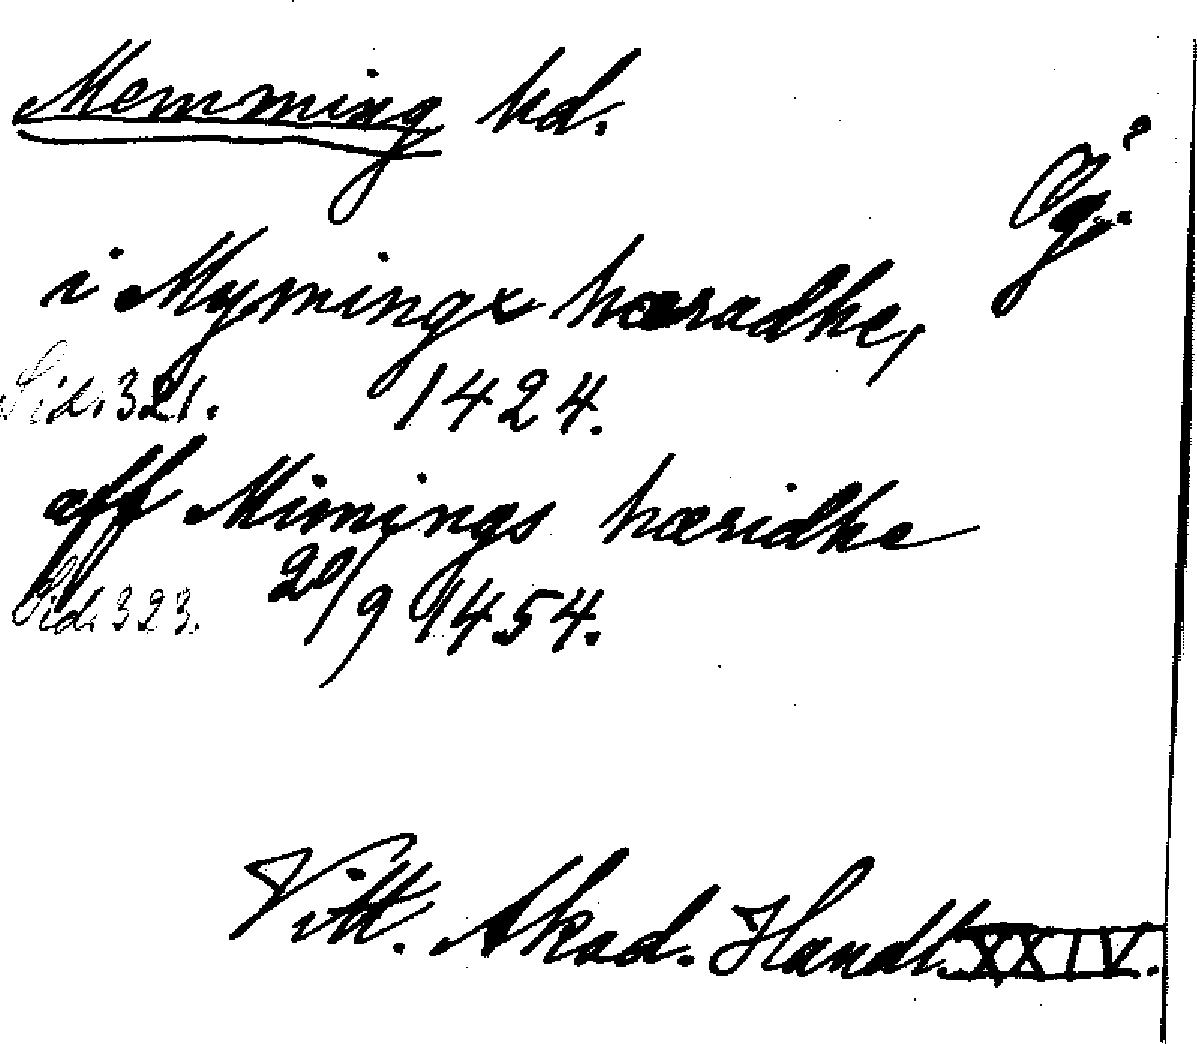 Memming hd.
Ög.
i Mymingx hæradhe,
Sid. 321. 1424.
aff Mimings hæridhe
Sid. 323. 20/9 1454.
Vitt. Akad. Handl. XXIV.